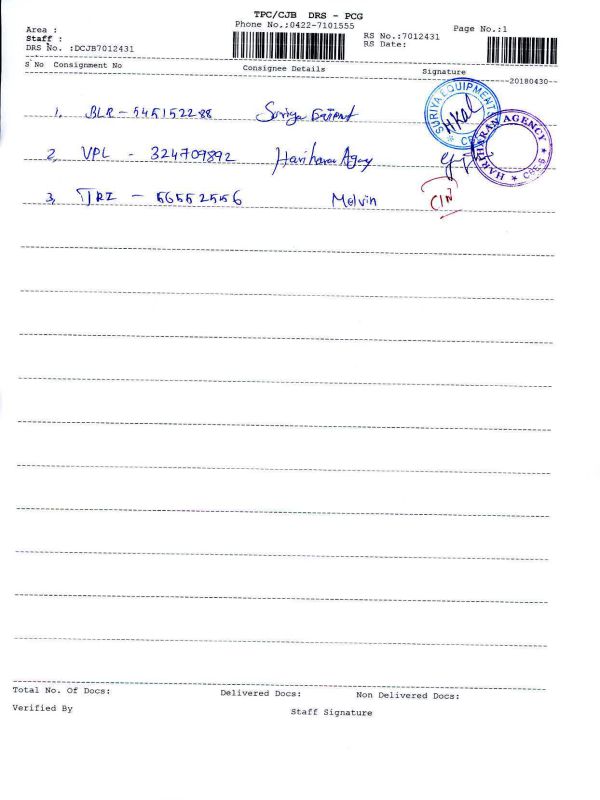 TPC/CJB DRS - PCG
Phone No.;0422-7101555
Page No.:1
Area :
Staff :
RS No.:7012431
DRS No. :DCJB7012431
RS Date:
S No Consignment No Consignee Details Signature
--20180430--
1, BLR - 545152288 Suriya
SURIYA EQUIPMENT
HARIHARAN AGENCY ★ CBE-6 ★
2, VPL - 324709892 Hariharan Agency
3, TRZ - 56552556 Melvin CIN
Total No. Of Docs: Delivered Docs: Non Delivered Docs:
Verified By Staff Signature